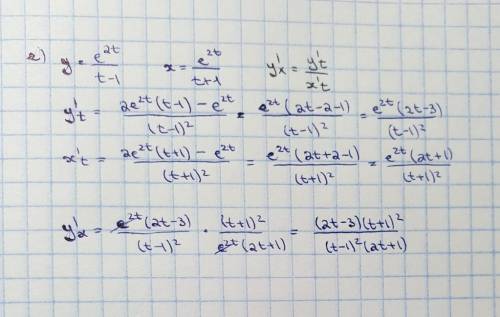 г) y = e^{2t}/(t-1)   x = e^{2t}/(t+1)   y'x = y't/x't
y't = (2e^{2t}(t-1) - e^{2t})/(t-1)² = e^{2t}(2t-2-1)/(t-1)² = e^{2t}(2t-3)/(t-1)²
x't = (2e^{2t}(t+1) - e^{2t})/(t+1)² = e^{2t}(2t+2-1)/(t+1)² = e^{2t}(2t+1)/(t+1)²
y'x = e^{2t}(2t-3)/(t-1)² · (t+1)²/(e^{2t}(2t+1)) = (2t-3)(t+1)²/((t-1)²(2t+1))